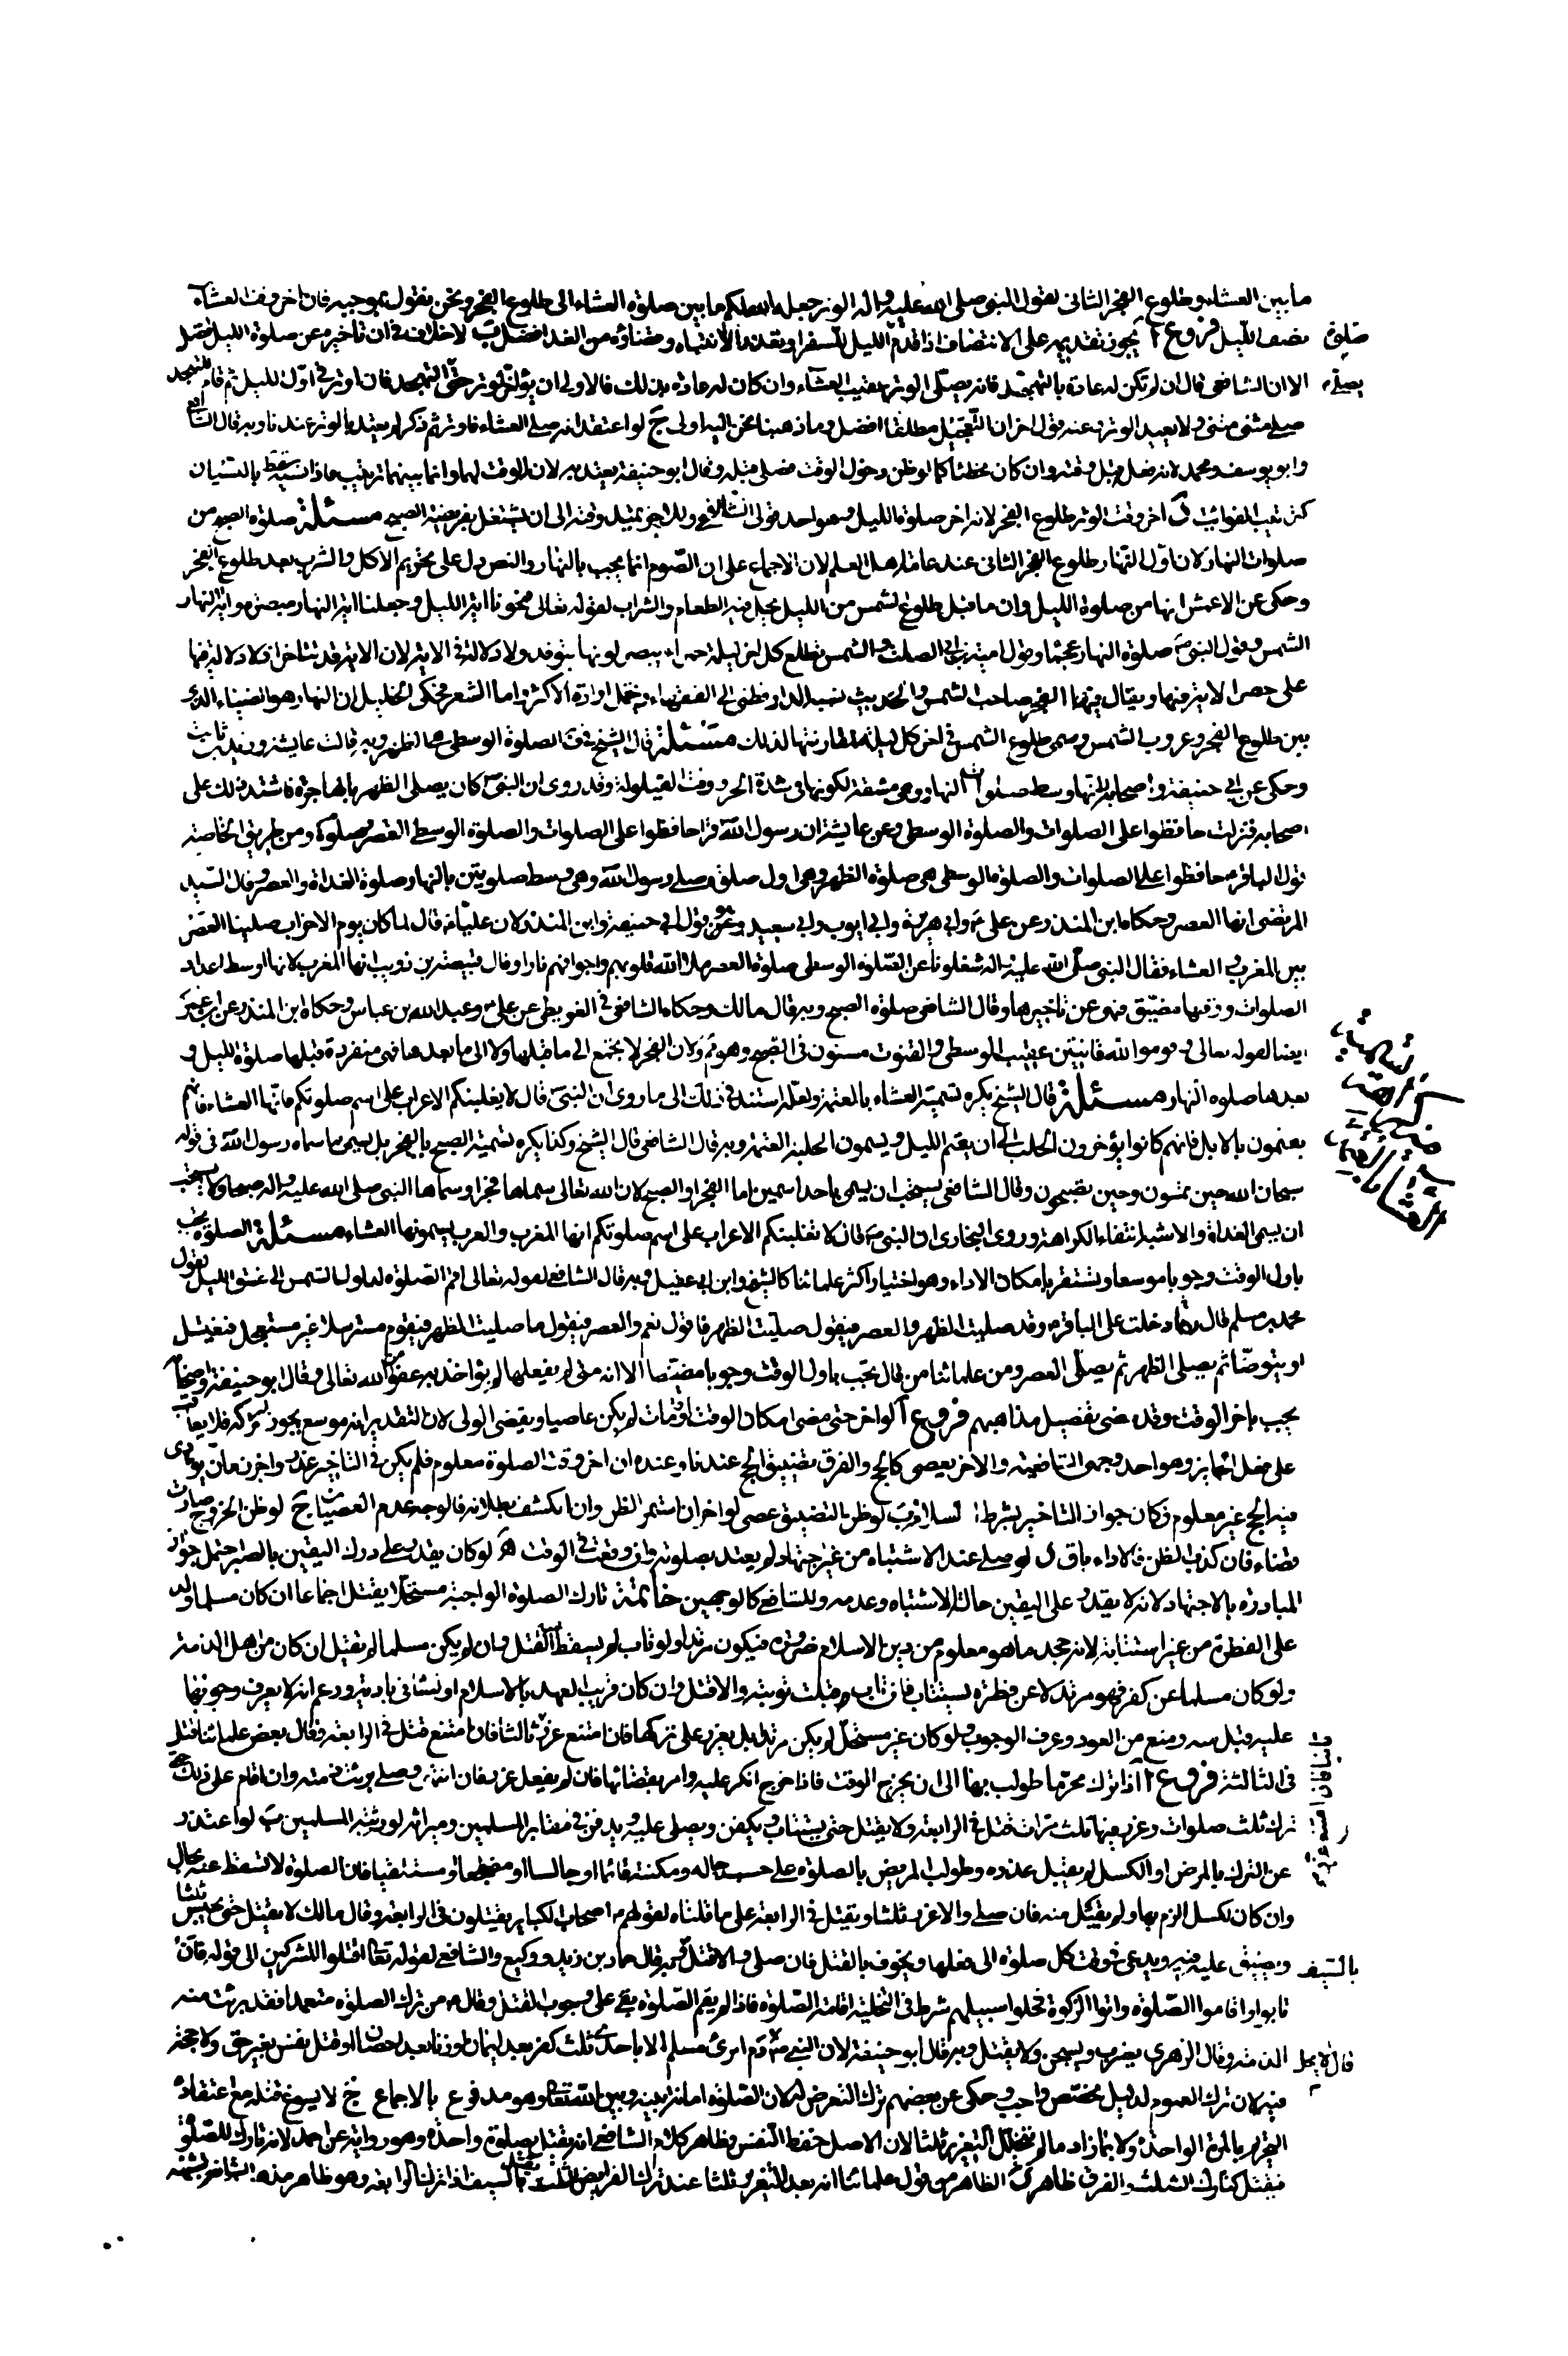 ما بين العشاء وطلوع الفجر الثاني لقول النبي صلى الله عليه وآله الوتر جعله الله لكم ما بين صلوة العشاء الى طلوع الفجر ونحن نقول بموجبه فان اخر وقت العشاء
نصف الليل فروع آ يجوز تقديمه على الانتصاف اذا قدم صلوة الليل للسفر او تعذر الانتباه وقضاؤه من الغد افضل ب لا خلاف في ان تأخيره عن صلوة الليل افضل
الا ان الشافعي قال ان لم تكن له عادة بالتهجد فانه يصلي الوتر عقيب العشاء وان كان له عادة بذلك فالاولى ان يؤخر الوتر حتى يصليه التهجد فان اوتر في اول الليل ثم قام للتهجد
صلى مثنى مثنى ولا يعيد الوتر وعنه قول اخر ان التعجيل مطلقا افضل وما ذهبنا نحن اليه اولى ج لو اعتقد انه صلى العشاء فاوتر ثم ذكر لم يعتد بالوتر عندنا وبه قال الشافعي
وابو يوسف ومحمد لانه فعل قبل وقته وان كان مخطئا كما لو ظن دخول الوقت فصلى قبله وقال ابو حنيفة يعتد به لان الوقت لهما وانما بينهما ترتيب فاذا نسيه سقط بالنسيان
كترتيب الفوائت د آخر وقت الوتر طلوع الفجر لانه اخر صلوة الليل وهو احد قولي الشافعي وللاخر يمتد وقته الى ان يشتغل بفريضة الصبح مسئلة صلوة الصبح من
صلوات النهار لان اول النهار طلوع الفجر الثاني عند عامة اهل العلم لان الاجماع على ان الصوم انما يجب بالنهار والنص دل على تحريم الاكل والشرب بعد طلوع الفجر
وحكي عن الاعمش انها من صلوة الليل وان ما قبل طلوع الشمس من الليل يحل فيه الطعام والشراب لقوله تعالى فمحونا اية الليل وجعلنا اية النهار مبصرة واية النهار
الشمس ولقول النبي ص صلوة النهار عجماء وقول امية بن ابي الصلت والشمس تطلع كل اخر ليلة حمراء يبصر لونها يتوقد ولا دلالة في الاية لان الاية قد تتأخر اذ لا دلالة فيها
على حصر الاية فيها ويقال ايضا الفجر حاجب الشمس والحديث نسبه الدارقطني الى الفقهاء ويحتمل ارادة الاكثر واما الشعر فحكى الخليل ان النهار هو الضياء الذي
بين طلوع الفجر وغروب الشمس وسمى طلوع الشمس في اخر كل ليلة لمقارنتها لذلك مسئلة قال الشيخ في ف الصلوة الوسطى هي الظهر وبه قالت عايشة وزيد بن ثابت
وحكي عن ابي حنيفة واصحابه لانها وسط صلوات النهار وهي مشقة لكونها في شدة الحر ووقت القيلولة وقد روي ان النبي ص كان يصلي الظهر بالهاجرة فاشتد ذلك على
اصحابه فنزلت حافظوا على الصلوات والصلوة الوسطى وعن عايشة ان رسول الله قرأ حافظوا على الصلوات والصلوة الوسطى وصلوة العصر ومن طريق الخاصة
قول الباقر ع حافظوا على الصلوات والصلوة الوسطى هي صلوة الظهر وهي اول صلوة صلى رسول الله وهي وسط صلوتين بالنهار صلوة الغداة والعصر وقال السيد
المرتضى انها العصر وحكاه ابن المنذر عن علي ع وابي هريرة وابي ايوب وابي سعيد وهو قول ابي حنيفة وابن المنذر لان عليا ع قال لما كان يوم الاحزاب صلينا العصر
بين المغرب والعشاء فقال النبي صلى الله عليه وآله شغلونا عن الصلوة الوسطى صلوة العصر ملأ الله قلوبهم واجوافهم نارا وقال قبيصة بن ذويب انها المغرب لانها اوسط اعداد
الصلوات ووقتها مضيق فنهى عن تأخيرها وقال الشافعي صلوة الصبح وبه قال مالك وحكاه الشافعي في البويطي عن علي ع وعبد الله بن عباس وحكاه ابن المنذر عن ابن عمر
ايضا لقوله تعالى وقوموا لله قانتين عقيب الوسطى والقنوت مسنون في الصبح وهو ثم ولان الفجر لا يجتمع الى ما قبلها ولا الى ما بعدها فهي منفردة قبلها صلوة الليل و
بعدها صلوة النهار مسئلة قال الشيخ يكره تسمية العشاء بالعتمة ولعله استند في ذلك الى ما روي ان النبي ص قال لا يغلبنكم الاعراب على اسم صلوتكم فانها العشاء فانهم
يعتمون بالابل فانهم كانوا يؤخرون الحلب الى ان يعتم الليل ويسمون الحلبة العتمة وبه قال الشافعي قال الشيخ وكذا يكره تسمية الصبح بالفجر بل يسمى بما سماه رسول الله في قوله
سبحان الله حين تمسون وحين تصبحون وقال الشافعي يستحب ان يسمى باحد اسمين اما الفجر او الصبح لان الله تعالى سماها فجرا وسماها النبي صلى الله عليه وآله صبحا ولا يستحب
ان يسمى الغداة والاشبه انتفاء الكراهة وروى البخاري ان النبي ص قال لا تغلبنكم الاعراب على اسم صلوتكم انها المغرب والعرب يسمونها العشاء مسئلة الصلوة تجب
باول الوقت وجوبا موسعا ويستقر بامكان الاداء وهو اختيار اكثر علمائنا كالشيخ وابن ابي عقيل وبه قال الشافعي لقوله تعالى اقم الصلوة لدلوك الشمس الى غسق الليل لقول
محمد بن مسلم قال ربما دخلت على الباقر ع وقد صليت الظهر والعصر فيقول صليت الظهر فاقول نعم والعصر فيقول ما صليت الظهر فيقوم مسترسلا غير مستعجل فيغتسل
او يتوضأ ثم يصلي الظهر ثم يصلي العصر ومن علمائنا من قال يجب باول الوقت وجوبا مضيقا الا انه متى لم يفعلها لم يؤاخذ به عفوا من الله تعالى وقال ابو حنيفة واصحابه
يجب باخر الوقت وقد مضى تفصيل مذاهبهم فروع آ لو اخر حتى مضى امكان الوقت ومات لم يكن عاصيا ويقضي الولي لان التقدير انه موسع يجوز تركه فلا يعاقب
على فعل الجائز وهو احد وجهي الشافعية والاخر يعصي كالحج والفرق تضييق الحج عندنا وعنده ان اخر وقت الصلوة معلوم فلم يكن في التأخير غرر واخر زمان يؤدى
فيه الحج غير معلوم فكان جواز التأخير بشرط السلامة ب لو ظن التضييق عصى لو اخر ان استمر الظن وان انكشف بطلانه فالوجه عدم العصيان ج لو ظن الخروج صارت
قضاء فان كذب الظن فالاداء باق د لو صلى عند الاشتباه من غير اجتهاد لم يعتد بصلوته وان وقعت في الوقت ه لو كان يقدر على درك اليقين بالصبر احتمل جواز
المبادرة بالاجتهاد لانه لا يقدر على اليقين حالة الاشتباه وعدمه وللشافعي كالوجهين خاتمة تارك الصلوة الواجبة مستحلا يقتل اجماعا ان كان مسلما ولد
على الفطرة من غير استتابة لانه جحد ما هو معلوم من دين الاسلام ضرورة فيكون مرتدا ولو تاب لم يسقط القتل وان لم يكن مسلما لم يقتل ان كان من اهل الذمة
ولو كان مسلما عن كفر فهو مرتد لا عن فطرة يستتاب فان تاب قبلت توبته والا قتل وان كان قريب العهد بالاسلام او نشأ في بادية وزعم انه لا يعرف وجوبها
عليه قبل منه ومنع من العود وعرف الوجوب ولو كان غير مستحل لم يكن مرتدا بل يعزر على تركها فان امتنع عزر ثالثا فان امتنع قتل في الرابعة وقال بعض علمائنا يقتل
في الثالثة فروع آ اذا ترك محرما طولب بها الى ان يخرج الوقت فاذا خرج انكر عليه وامر بقضائها فان لم يفعل عزر فان انتهى وصلى برئت ذمته وان اقام على ذلك حتى
ترك ثلث صلوات وعزر فيها ثلث مرات قتل في الرابعة ولا يقتل حتى يستتاب ويكفن ويصلى عليه ويدفن في مقابر المسلمين وميراثه لورثته المسلمين ب لو اعتذر
عن الترك بالمرض او الكسل لم يقبل عذره وطولب المريض بالصلوة على حسب حاله ومكنته قائما او جالسا او مضطجعا او مستلقيا فان الصلوة لا تسقط عنه بحال
وان كان لكسل الزم بها ولم يقبل منه فان صلى والا عزر ثلثا ويقتل في الرابعة على ما قلناه لقولهم ع اصحاب الكبائر يقتلون في الرابعة وقال مالك لا يقتل حتى يحبس ثلثا
ويضيق عليه فيه ويدعى في وقت كل صلوة الى فعلها ويخوف بالقتل فان صلى والا قتل بالسيف وبه قال حماد بن زيد ووكيع والشافعي لقوله تعالى اقتلوا المشركين الى قوله فان
تابوا واقاموا الصلوة واتوا الزكوة فخلوا سبيلهم شرط في التخلية اقامة الصلوة فاذا لم يقم الصلوة بقي على وجوب القتل وقال ع من ترك الصلوة متعمدا فقد برئت منه
الذمة وقال الزهري يضرب ويسجن ولا يقتل وبه قال ابو حنيفة لان النبي ص قال لا يحل دم امرئ مسلم الا باحدى ثلث كفر بعد ايمان او زنا بعد احصان او قتل نفس بغير حق ولا حجة
فيه لان ترك العموم لدليل مخصص واجب وحكي عن بعضهم ترك التعرض له لان الصلوة امانة بينه وبين الله تعالى وهو مدفوع بالاجماع ج لا يسوغ قتله مع اعتقاده
التحريم بالمرة الواحدة ولا بما زاد ما لم يتخلل التعزير ثلثا لان الاصل حفظ النفس وظاهر كلام الشافعي انه يقتل بصلوة واحدة وهو رواية عن احمد لانه تارك للصلوة
فيقتل كتارك الثلث والفرق ظاهر د الظاهر من قول علمائنا انه بعد التعزير ثلثا عند ترك الفرائض الثلث يقتل بالسيف اذا ترك الرابعة وهو ظاهر مذهب الشافعي